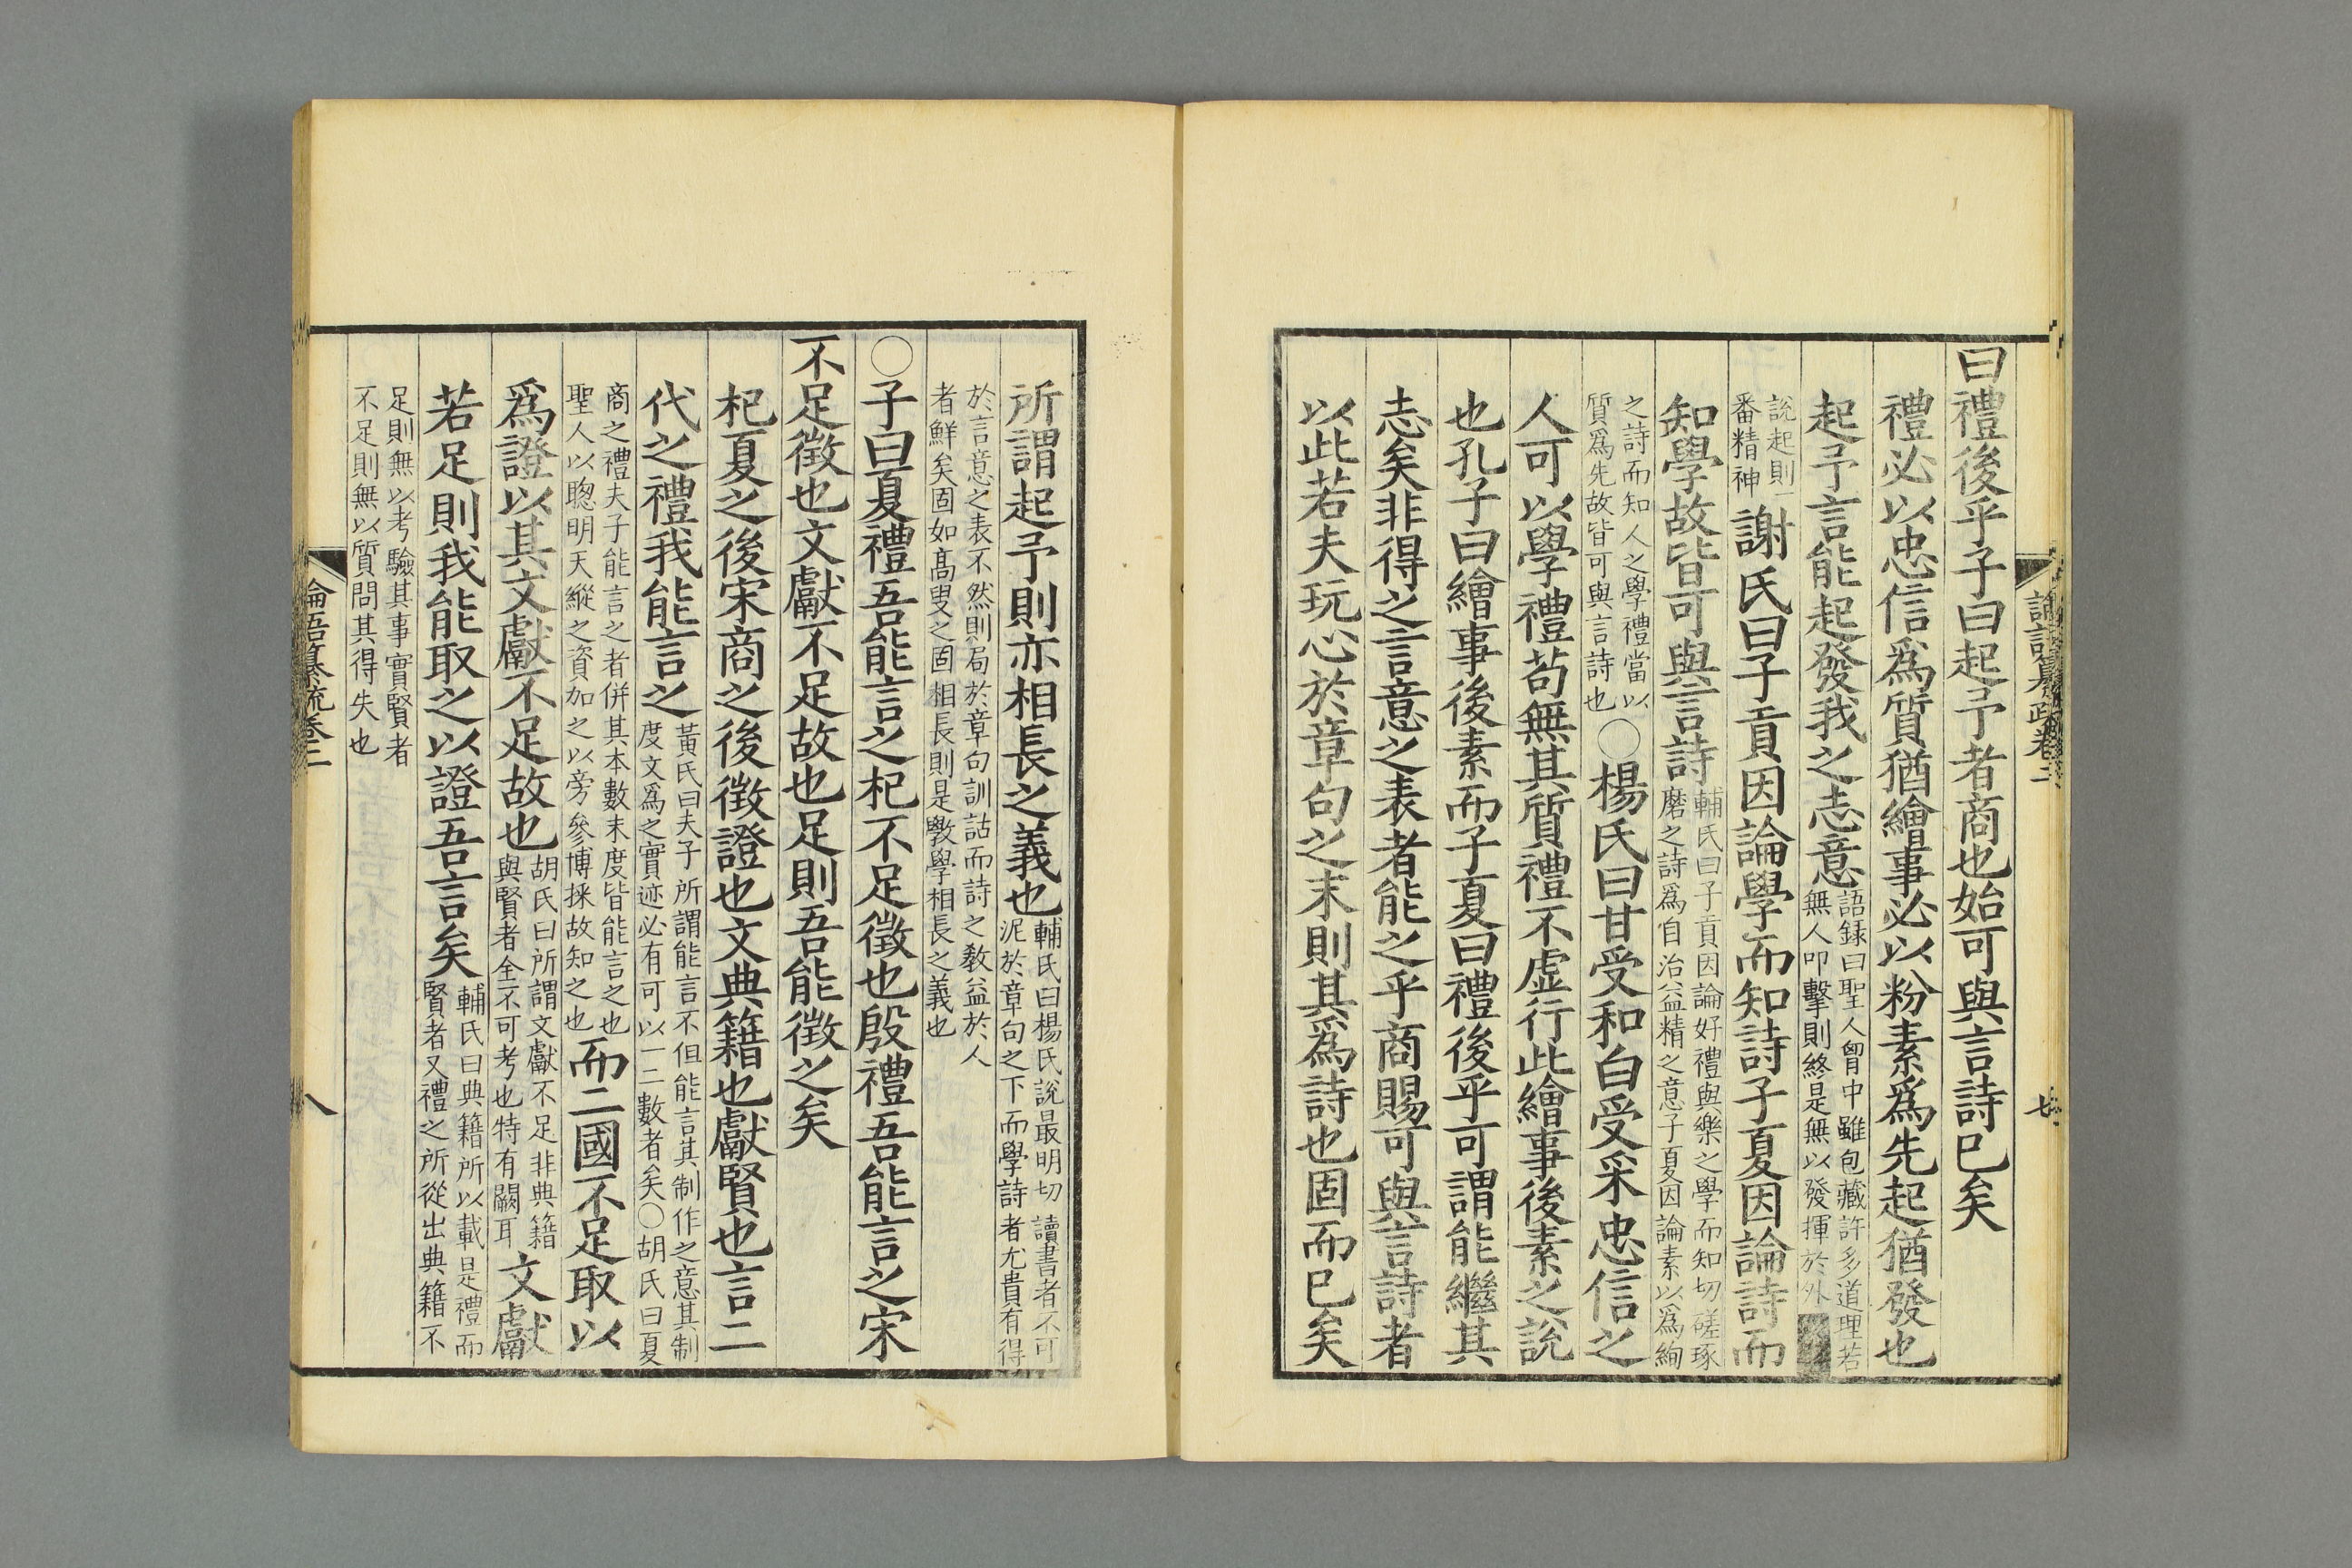 論語纂疏卷二
七
曰禮後乎子曰起予者商也始可與言詩已矣
禮必以忠信爲質猶繪事必以粉素爲先起猶發也
起予言能起發我之志意
語録曰聖人胷中雖包藏許多道理若
無人叩擊則終是無以發揮於外
說起則一
番精神
謝氏曰子貢因論學而知詩子夏因論詩而
知學故皆可與言詩
輔氏曰子貢因論好禮與樂之學而知切磋琢
磨之詩爲自治益精之意子夏因論素以爲絢
之詩而知人之學禮當以
質爲先故皆可與言詩也
○楊氏曰甘受和白受采忠信之
人可以學禮苟無其質禮不虛行此繪事後素之說
也孔子曰繪事後素而子夏曰禮後乎可謂能繼其
志矣非得之言意之表者能之乎商賜可與言詩者
以此若夫玩心於章句之末則其爲詩也固而已矣
所謂起予則亦相長之義也
輔氏曰楊氏說最明切讀書者不可
泥於章句之下而學詩者尤貴有得
於言意之表不然則局於章句訓詁而詩之教益於人
者鮮矣固如高叟之固相長則是斆學相長之義也
○子曰夏禮吾能言之杞不足徵也殷禮吾能言之宋
不足徵也文獻不足故也足則吾能徵之矣
杞夏之後宋商之後徵證也文典籍也獻賢也言二
代之禮我能言之
黃氏曰夫子所謂能言不但能言其制作之意其制
度文爲之實迹必有可以一二數者矣○胡氏曰夏
商之禮夫子能言之者併其本數末度皆能言之也
聖人以聰明天縱之資加之以旁參博採故知之也
而二國不足取以
爲證以其文獻不足故也
胡氏曰所謂文獻不足非典籍
與賢者全不可考也特有闕耳
文獻
若足則我能取之以證吾言矣
輔氏曰典籍所以載是禮而
賢者又禮之所從出典籍不
足則無以考驗其事實賢者
不足則無以質問其得失也
論語纂疏卷二
八